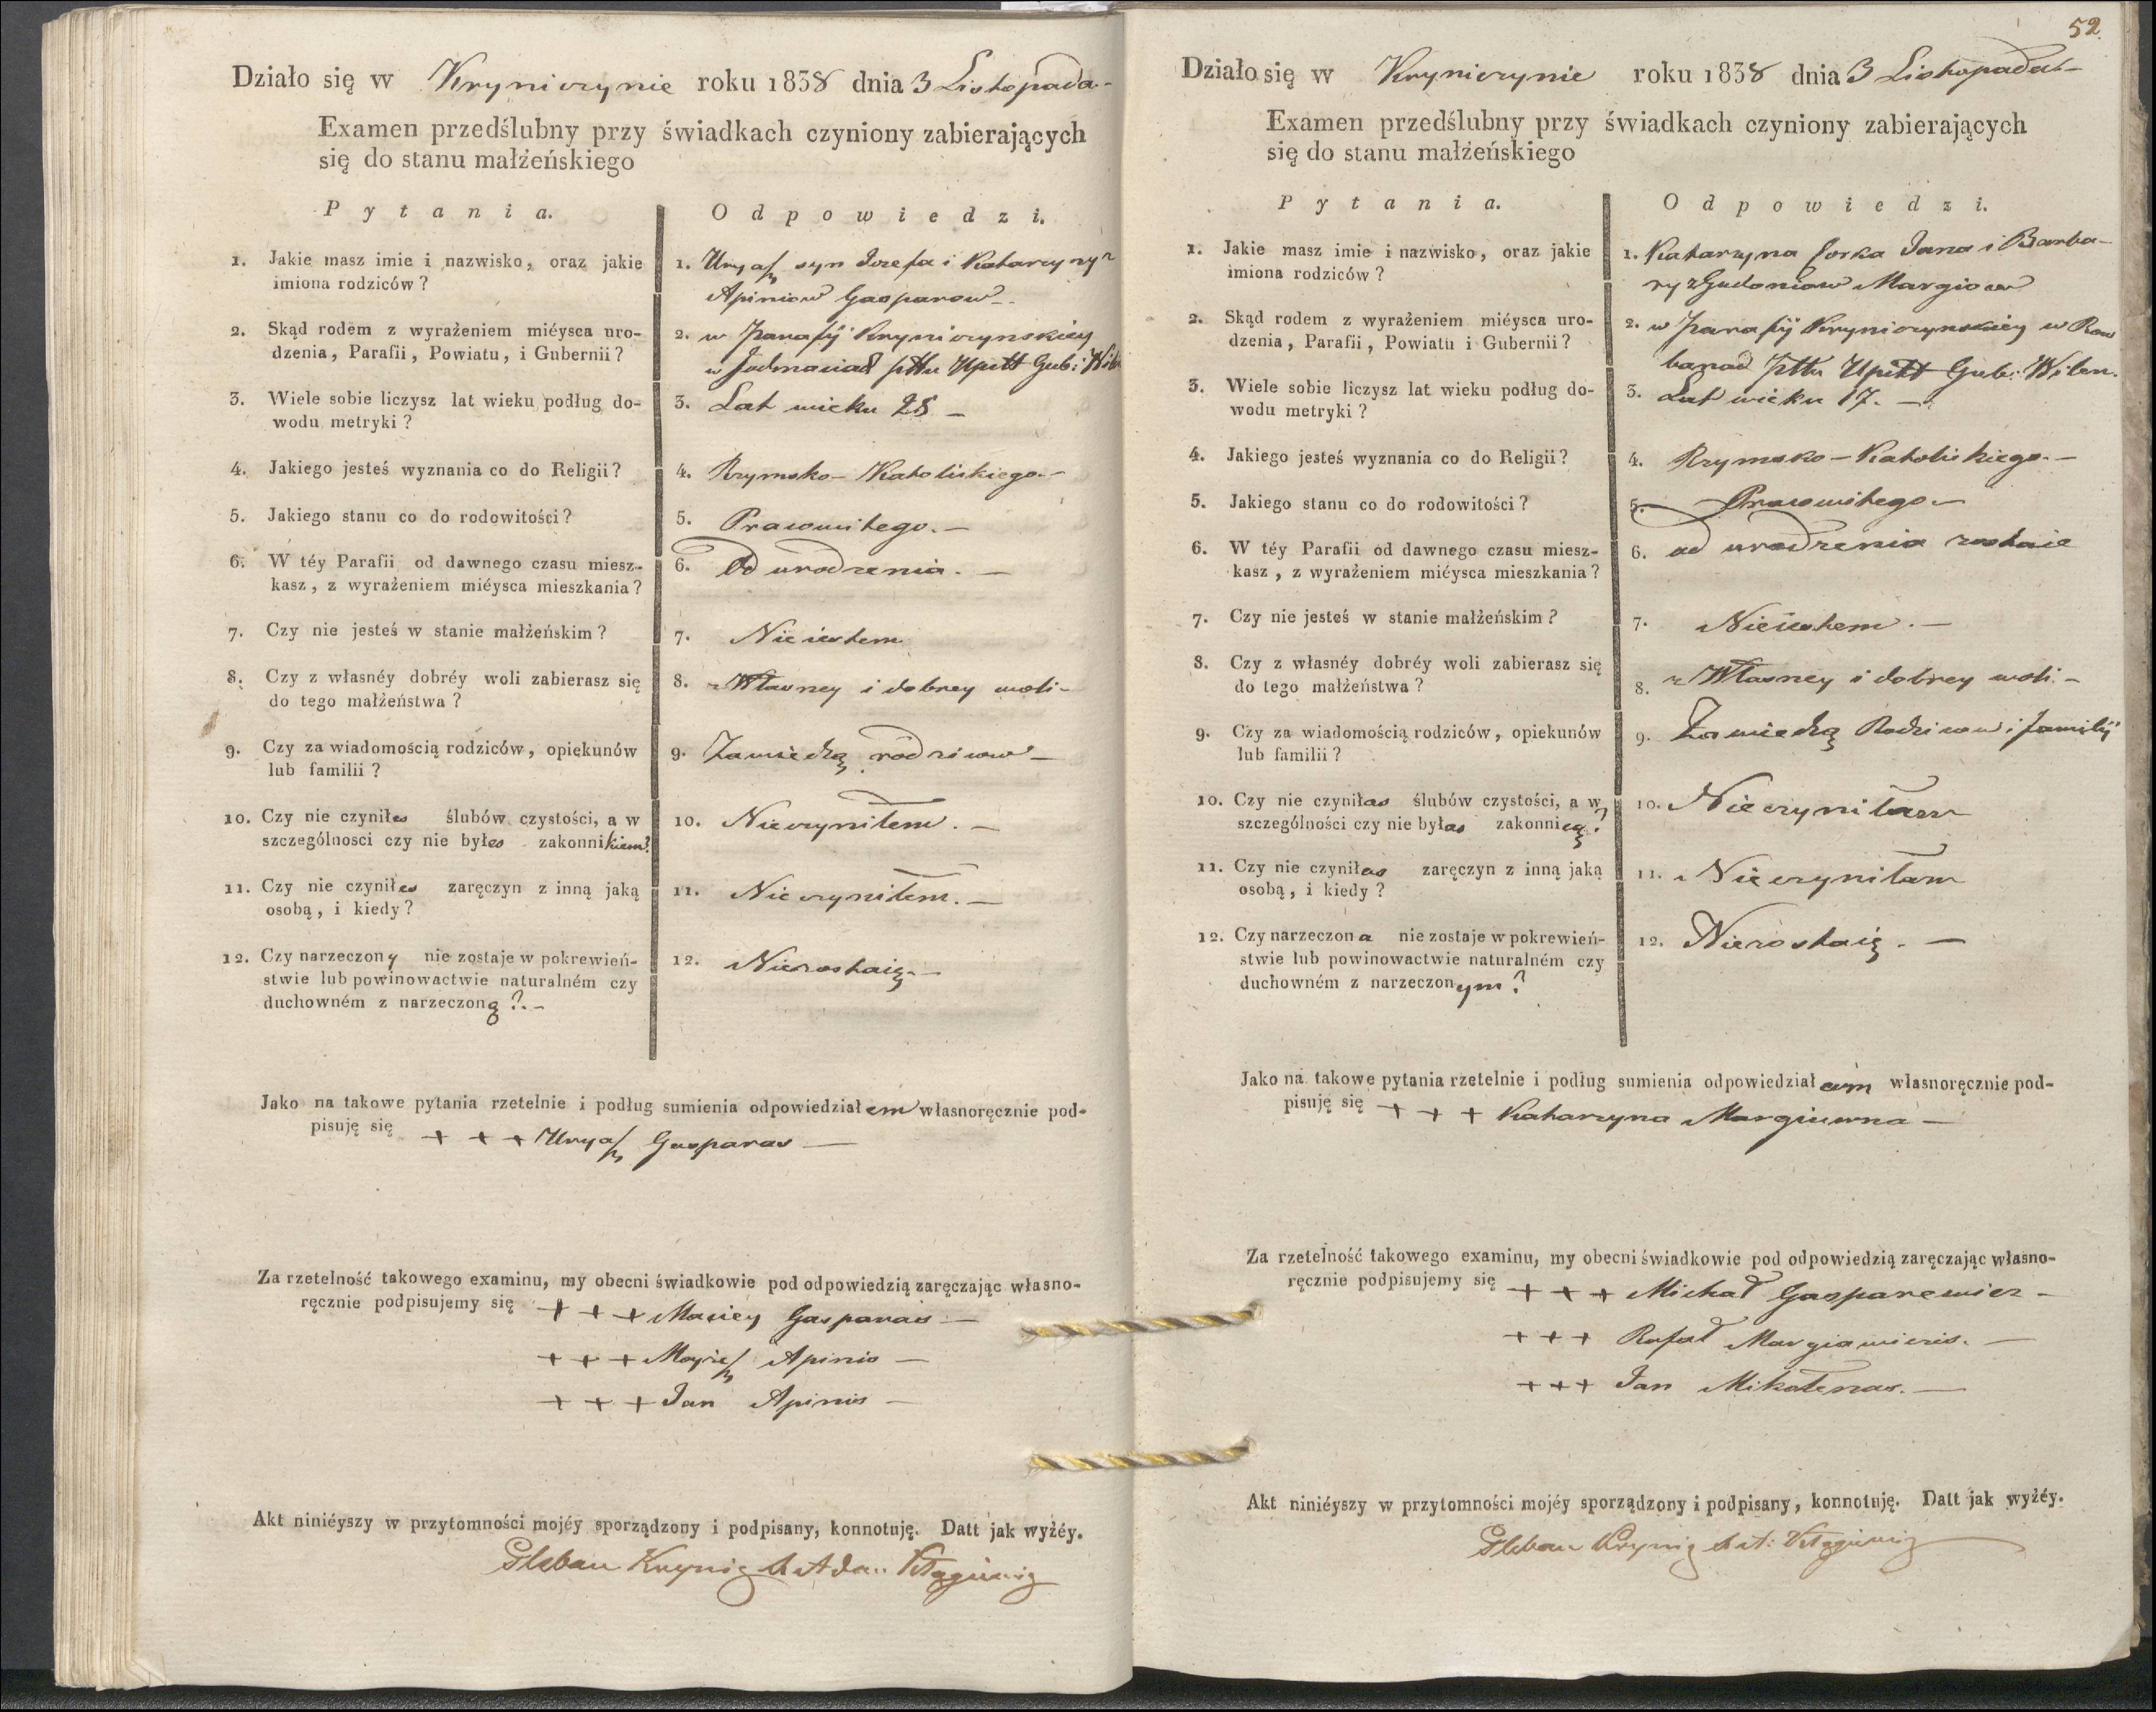 Działo się w Kryniczynie roku 1838 dnia 3 Listopada -
Examen przedślubny przy świadkach czyniony zabierających
się do stanu małżeńskiego
Pytania.
Odpowiedzi.
1. Jakie masz imie i nazwisko, oraz jakie
imiona rodziców?
1. Uryasz syn Jozefa i Katarzyny z
Apiniow Gasparow -
2. Skąd rodem z wyrażeniem miéysca uro-
dzenia, Parafii, Powiatu, i Gubernii?
2. w Parafij Kryniczynskiey
w ptu Upitt Gub: Wil
3. Wiele sobie liczysz lat wieku podług do-
wodu metryki?
3. Lat wieku 28 -
4. Jakiego jesteś wyznania co do Religii?
4. Rzymsko-Katolickiego. -
5. Jakiego stanu co do rodowitości?
5. Prawowitego. -
6. W téy Parafii od dawnego czasu miesz-
kasz, z wyrażeniem miéysca mieszkania?
6. Od urodzenia. -
7. Czy nie jesteś w stanie małżeńskim?
7. Nie iestem
8. Czy z własnéy dobréy woli zabierasz się
do tego małżeństwa?
8. z Własney i dobrey woli -
9. Czy za wiadomością rodziców, opiekunów
lub familii?
9. Zawiedzą rodzicow -
10. Czy nie czyniłes ślubów czystości, a w
szczególnosci czy nie byłes zakonnikiem?
10. Nieczyniłem. -
11. Czy nie czyniłes zaręczyn z inną jaką
osobą, i kiedy?
11. Nieczyniłem. -
12. Czy narzeczony nie zostaje w pokrewień-
stwie lub powinowactwie naturalném czy
duchowném z narzeczoną?. -
12. Niezostaię. -
Jako na takowe pytania rzetelnie i podług sumienia odpowiedziałem własnoręcznie pod-
pisuję się + + + Uryasz Gasparas -
Za rzetelność takowego examinu, my obecni świadkowie pod odpowiedzią zaręczając własno-
ręcznie podpisujemy się + + + Maciey Gasparas -
+ + + Apinis -
+ + + Jan Apinis -
Akt niniéyszy w przytomności mojéy sporządzony i podpisany, konnotuję. Datt jak wyżéy.
Pleban
52
Działo się w Kryniczynie roku 1838 dnia 3 Listopada -
Examen przedślubny przy świadkach czyniony zabierających
się do stanu małżeńskiego
Pytania.
Odpowiedzi.
1. Jakie masz imie i nazwisko, oraz jakie
imiona rodziców?
1. Katarzyna Corka Jana i Barba-
ry z Gudoniow Margiow
2. Skąd rodem z wyrażeniem miéysca uro-
dzenia, Parafii, Powiatu i Gubernii?
2. w Parafij Kryniczynskiey w Raw
banad Pttu Upitt Gub: Wilen.
3. Wiele sobie liczysz lat wieku podług do-
wodu metryki?
3. Lat wieku 17. -
4. Jakiego jesteś wyznania co do Religii?
4. Rzymsko-Katolickiego. -
5. Jakiego stanu co do rodowitości?
5. Prawowitego -
6. W téy Parafii od dawnego czasu miesz-
kasz, z wyrażeniem miéysca mieszkania?
6. od urodzenia zostaie
7. Czy nie jesteś w stanie małżeńskim?
7. Nieiestem. -
8. Czy z własnéy dobréy woli zabierasz się
do tego małżeństwa?
8. z Własney i dobrey woli. -
9. Czy za wiadomością rodziców, opiekunów
lub familii?
9. Zawiedzą Rodzicow i familij
10. Czy nie czyniłas ślubów czystości, a w
szczególności czy nie byłas zakonnicą?
10. Nieczyniłam
11. Czy nie czyniłas zaręczyn z inną jaką
osobą, i kiedy?
11. Nieczyniłam
12. Czy narzeczona nie zostaje w pokrewień-
stwie lub powinowactwie naturalném czy
duchowném z narzeczonym?
12. Niezostaię. -
Jako na takowe pytania rzetelnie i podług sumienia odpowiedziałam własnoręcznie pod-
pisuję się + + + Katarzyna Margiuwna -
Za rzetelność takowego examinu, my obecni świadkowie pod odpowiedzią zaręczając własno-
ręcznie podpisujemy się + + + Michał Gasparewicz -
+ + + Rafał Margiawicis. -
+ + + Jan Mikołenas. -
Akt niniéyszy w przytomności mojéy sporządzony i podpisany, konnotuję. Datt jak wyżéy.
Pleban